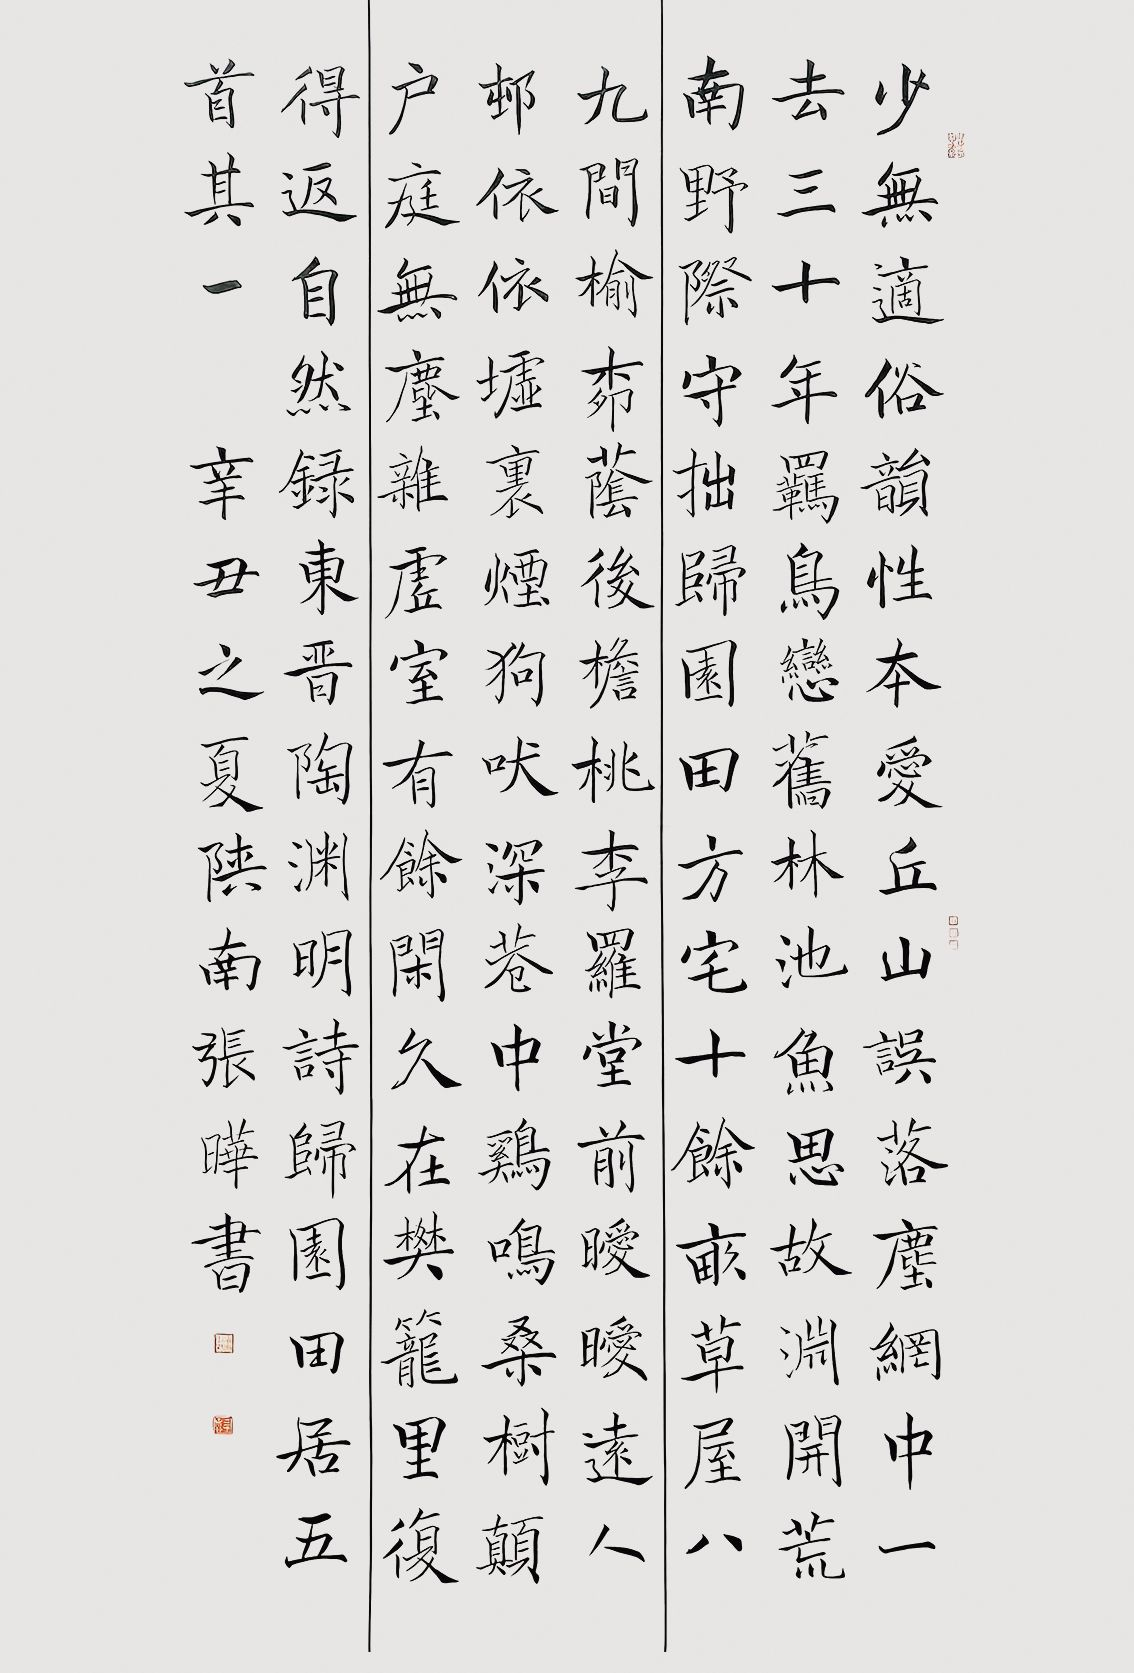 少無適俗韻性本愛丘山誤落塵網中一
去三十年羈鳥戀舊林池魚思故淵開荒
南野際守拙歸園田方宅十餘畝草屋八
九間榆桺蔭後檐桃李羅堂前曖曖遠人
邨依依墟裏煙狗吠深巷中鷄鳴桑樹顛
户庭無塵雜虛室有餘閑久在樊籠里復
得返自然録東晋陶渊明詩歸園田居五
首其一 辛丑之夏陕南張曄書